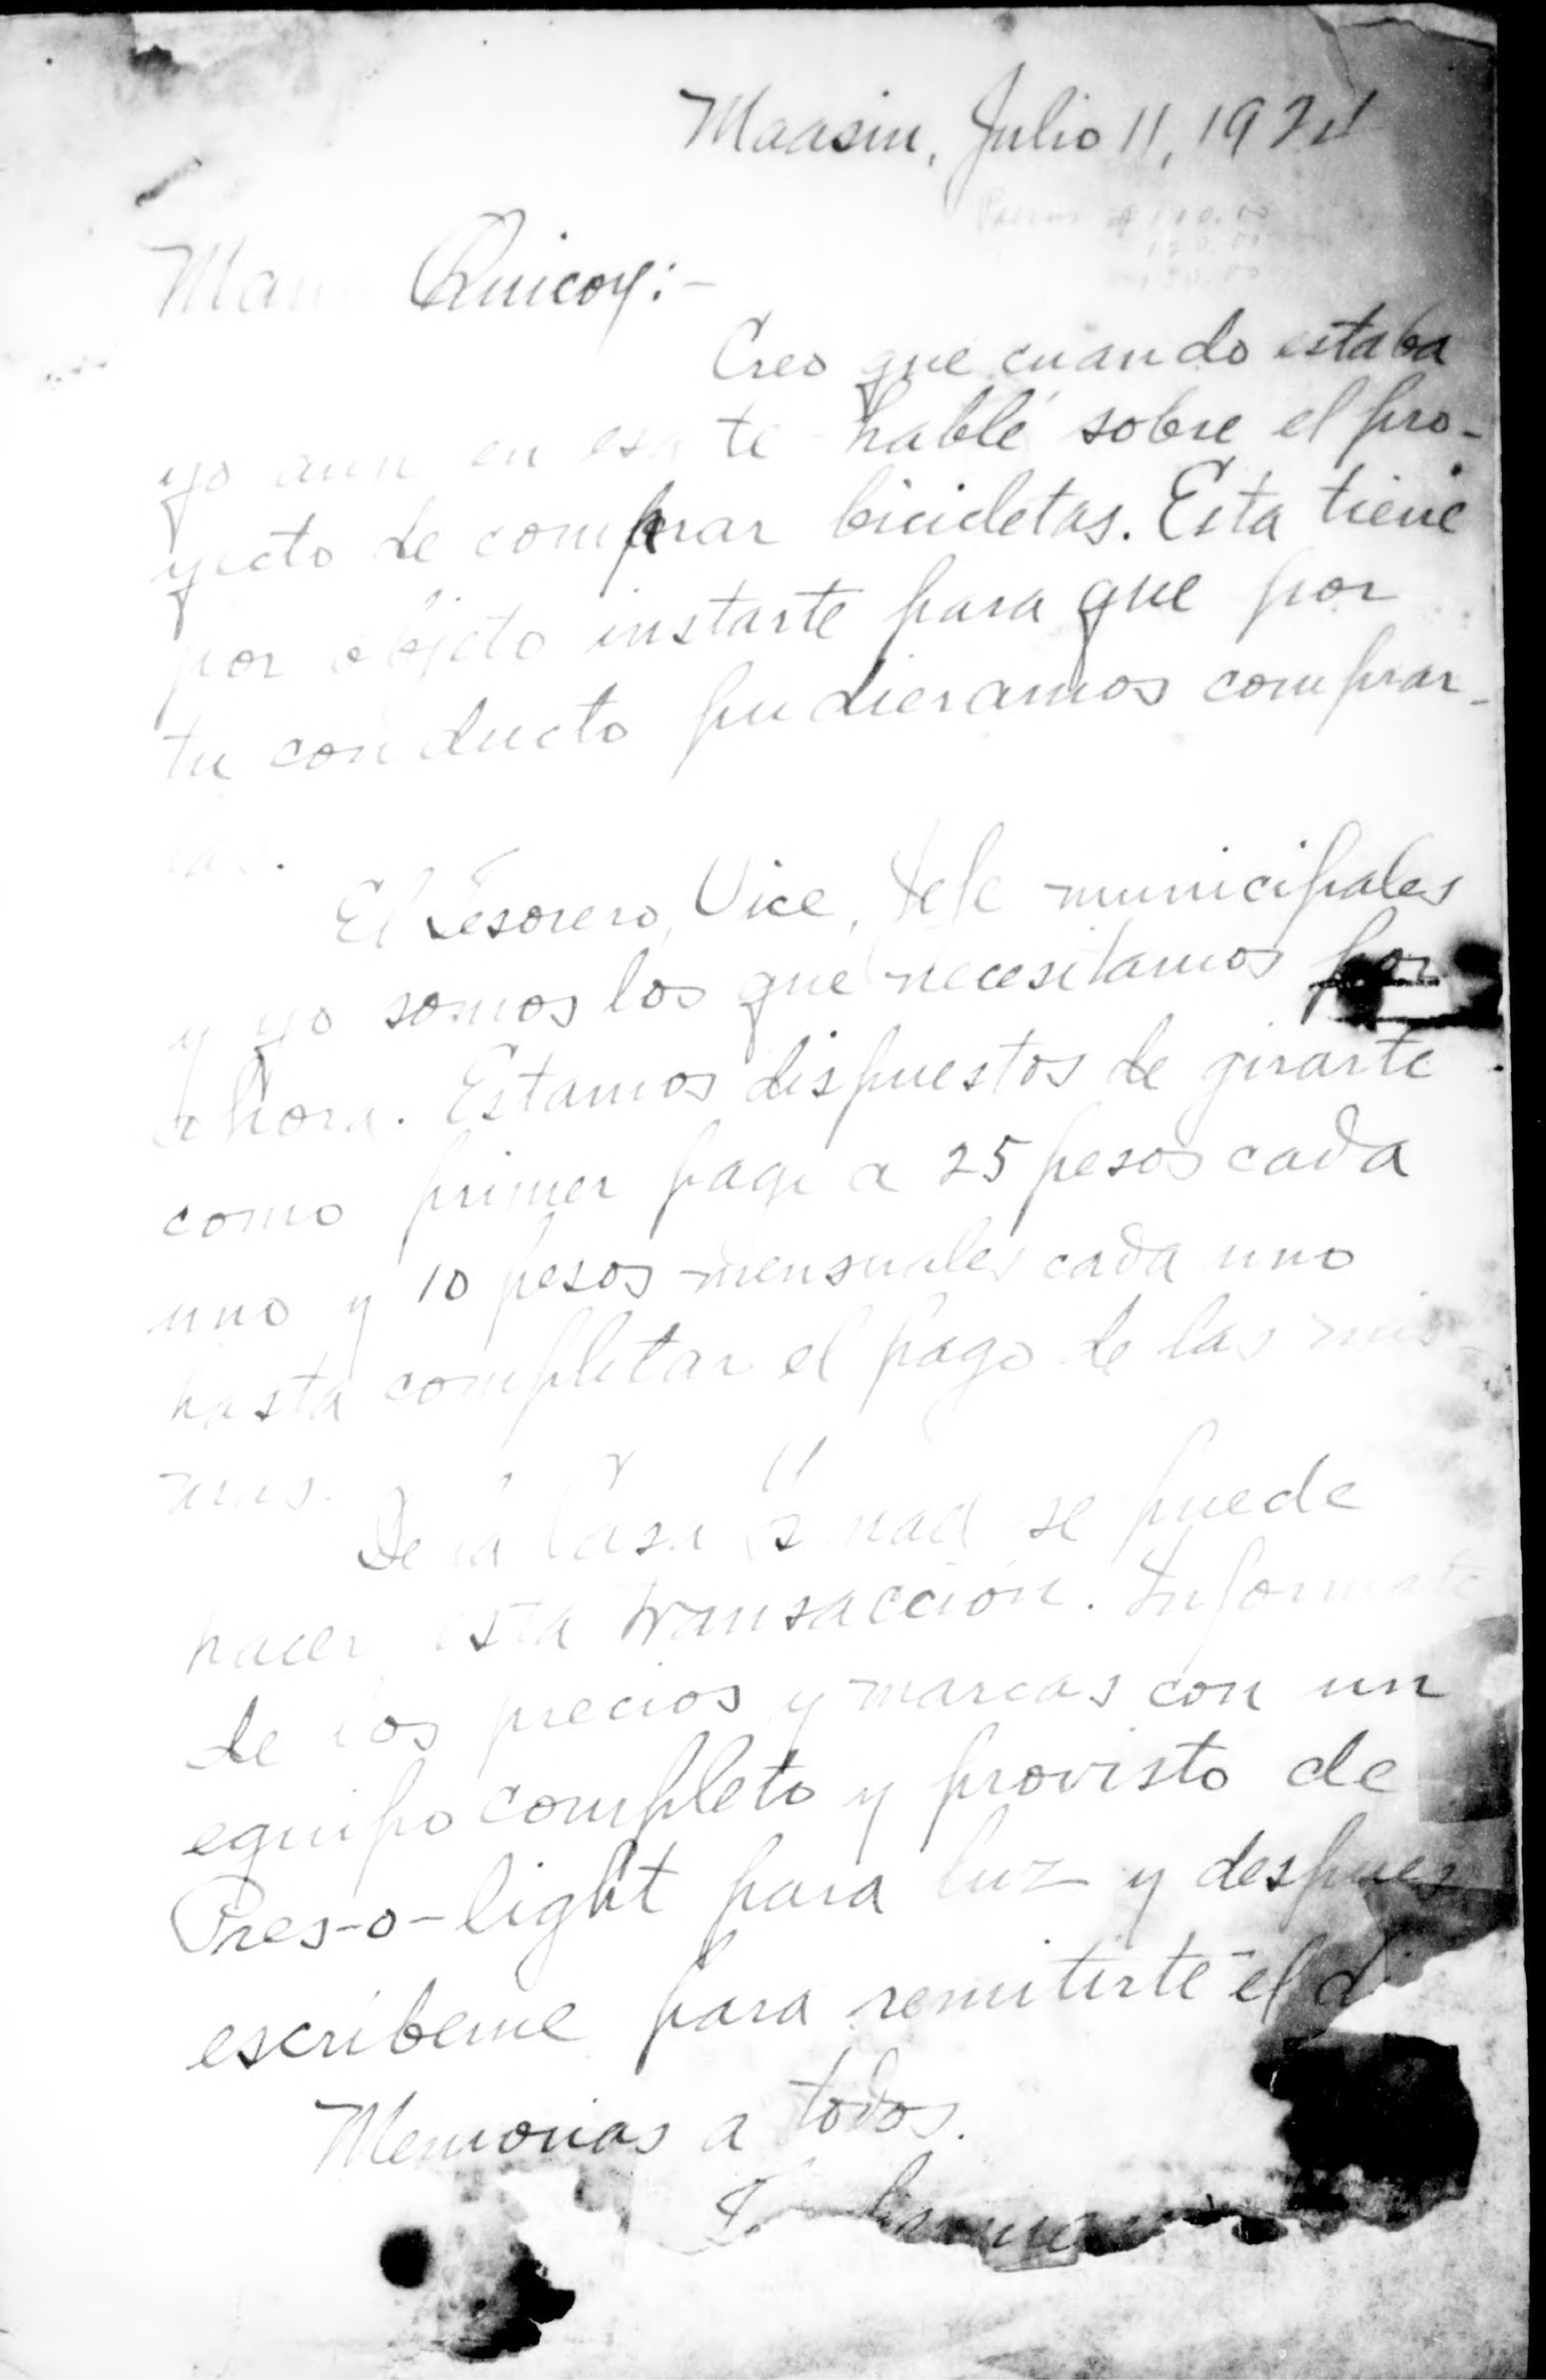 Maasin, Julio 11, 192
Quicoy:-
Creo que cuando estaba
yo aun en esa te hablé sobre el pro-
yecto de comprar bicicletas. Esta tiene
por objeto instarte para que por
tu conducto pudieramos comprar-
las.
El Tesorero, Vice, Jefe municipales
y yo somos los que necesitamos por
ahora. Estamos dispuestos de girarte
como primer pago a 25 pesos cada
uno y 10 pesos mensuales cada uno
hasta completar el pago de las mis-
mas.
De la Casa se puede
hacer esta transacción. Informate
de los precios y marcas con un
equipo completo y provisto de
Pres-o-light para luz y despues
escribeme para remitirte el d
Memorias a todos.